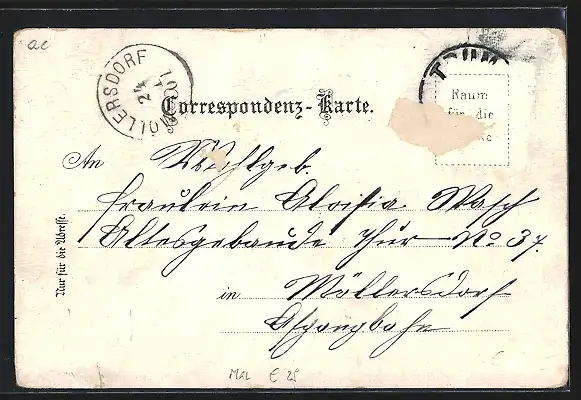 ac
MÖLLERSDORF
24 7 01
TRUM
Correspondenz-Karte.
Raum
für die
An Wohlgeb.
Fräulein Aloisia Wasch
Altesgebäude Thür No 37.
Nur für die Adresse.
in Möllersdorf
Aspangbahn
E 25